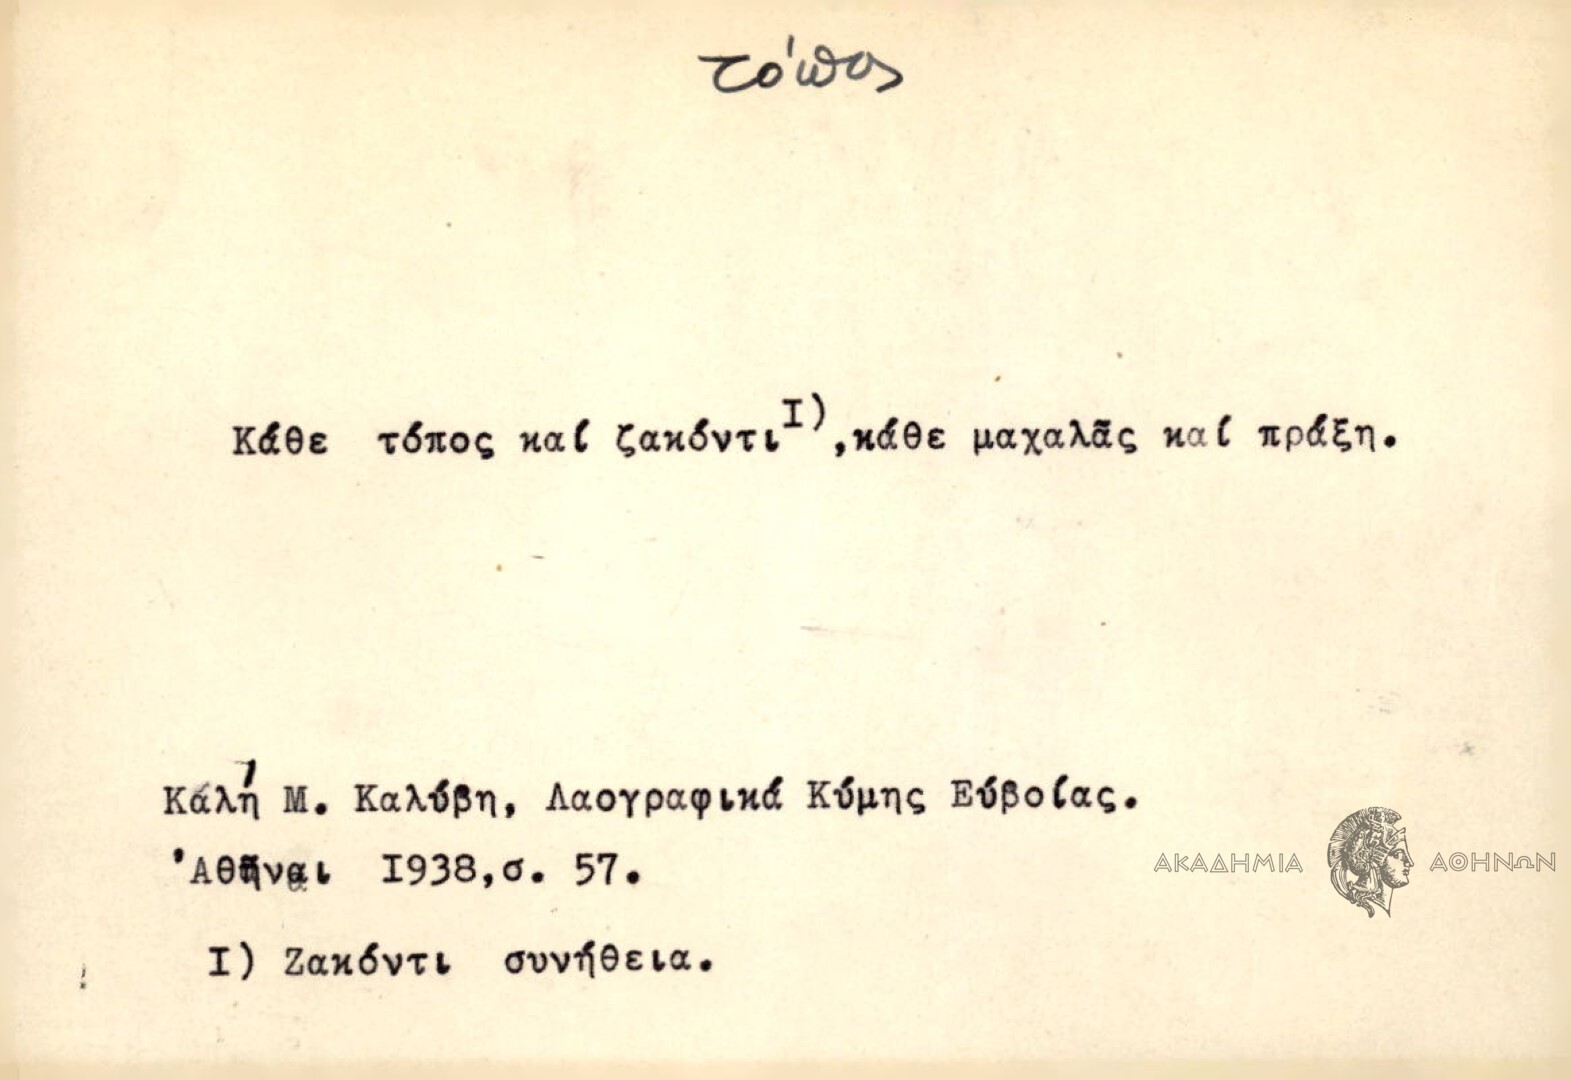 τόπος
Κάθε τόπος καί ζακόντι I) ,κάθε μαχαλᾶς καί πράξη.
Καλή Μ. Καλύβη, Λαογραφικά Κύμης Εύβοίας.
'Αθῆναι I938,σ. 57.
I) Ζακόντι συνήθεια.
ΑΚΑΔΗΜΙΑ ΑΘΗΝΩΝ